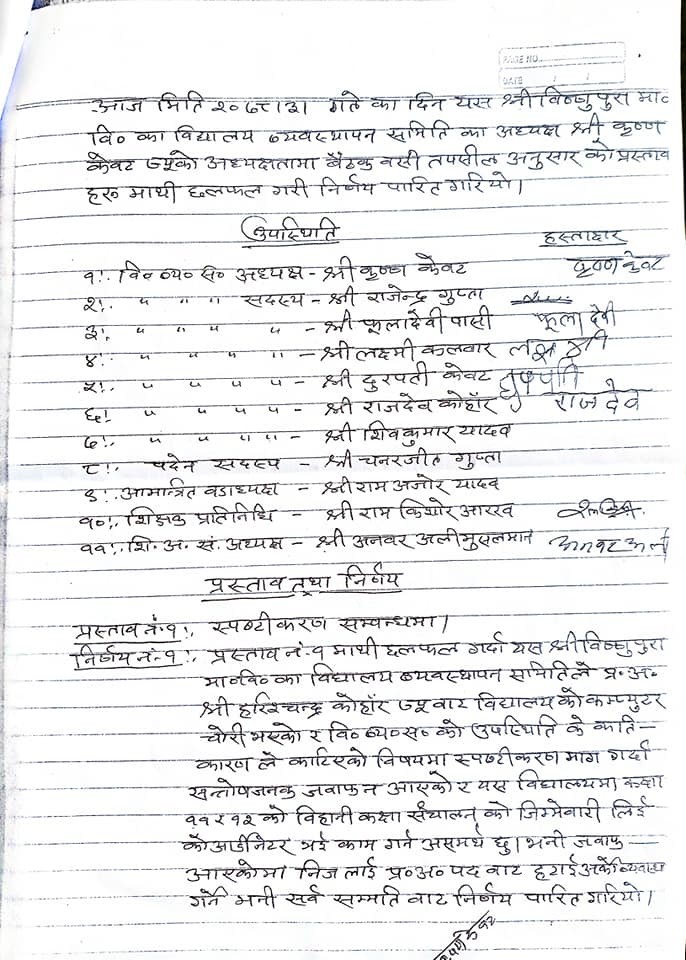 PAGE NO.
DATE / /
आज मिति २०७८।३। गते का दिन यस श्री विष्णुपुरा मा०
वि० का विद्यालय व्यवस्थापन समिति का अध्यक्ष श्री कृष्ण
केवट ज्यूको अध्यक्षतामा बैठक वसी तपसील अनुसार को प्रस्ताव
हरु माथी छलफल गरी निर्णय पारित गरियो।
उपस्थिति हस्ताक्षर
१!. वि० व्य० स० अध्यक्ष - श्री कृष्ण केवट कृष्ण केवट
२!. " " " सदस्य - श्री राजेन्द्र गुप्ता
३!. " " " " - श्री फूलादेवी पासी फूला देवी
४!. " " " " - श्री लक्ष्मी कलवार
५!. " " " " - श्री दुरपती केवट
६! " " " " - श्री राजदेव कोहाँर राज देव
७!. " " " " - श्री शिवकुमार यादव
८!. पदेन सदस्य - श्री चनरजीत गुप्ता
९!. आमान्त्रित वडाध्यक्ष - श्री राम अजोर यादव
१०!. शिक्षक प्रतिनिधि - श्री राम किशोर आरख
११!. शि. अ. सं. अध्यक्ष - श्री अनवर अली मुसलमान अनवर अली
प्रस्ताव तथा निर्णय
प्रस्ताव नं. १!. स्पष्टीकरण सम्वन्धमा।
निर्णय नं. १!. प्रस्ताव नं. १ माथी छलफल गर्दा यस श्री विष्णुपुरा
मा०वि० का विद्यालय व्यवस्थापन समितिले प्र.अ.
श्री हरिश्चन्द्र कोहाँर ज्यू वाट विद्यालय को कम्प्युटर
चोरी भएको र वि० व्य० स० को उपस्थिति के काति-
कारण ले काटिएको विषयमा स्पष्टीकरण माग गर्दा
सन्तोषजनक जवाफ न आएको र यस विद्यालयमा कक्षा
११ र १२ को विहानी कक्षा संचालन को जिम्मेवारी लिई
कोआर्डीनेटर भई काम गर्न असमर्थ छु। भनी जवाफ
आएकोमा निज लाई प्र.अ. पद वाट हटाई अर्को व्यवस्था
गर्ने भनी सर्व सम्मति वाट निर्णय पारित गरियो।
कृष्ण केवट